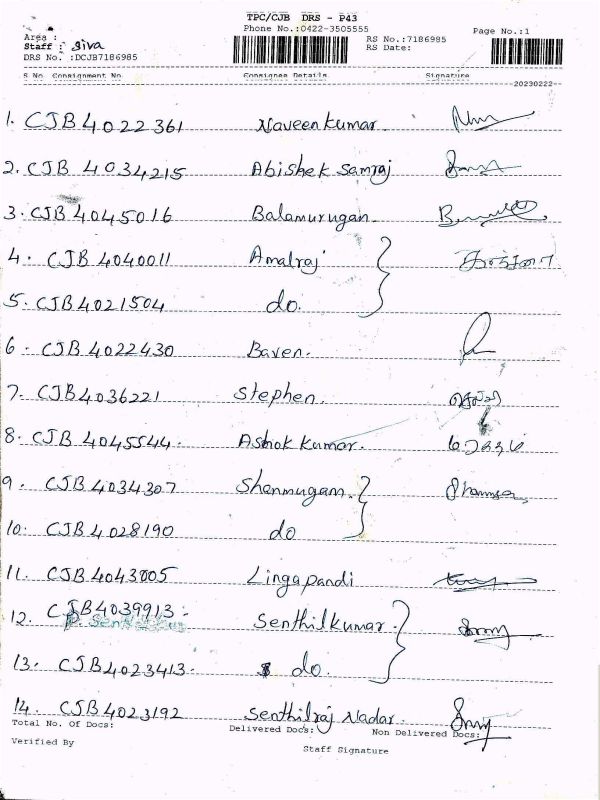 TPC/CJB DRS - P43
Phone No.:0422-3505555
Area :
Staff : Siva
DRS No. :DCJB7186985
RS No.:7186985
RS Date:
Page No.:1
S No Consignment No Consignee Details Signature
20230222
1. CJB 4022361 Naveen kumar.
2. CJB 4034215 Abishek Samraj
3. CJB 4045016 Balamurugan.
4. CJB 4040011 Amalraj
5. CJB 4021504 do.
6. CJB 4022430 Baven.
7. CJB 4036221 Stephen.
8. CJB 4045544. Ashok kumar.
9. CJB 4034307 Shenmugam.
10. CJB 4028190 do
11. CJB 4043005 Lingapandi
12. CJB4039913. Senthilkumar.
13. CJB 4023413. do.
14. CJB 4023192 Senthilraj Nadar.
Total No. Of Docs: Delivered Docs: Non Delivered Docs:
Verified By
Staff Signature